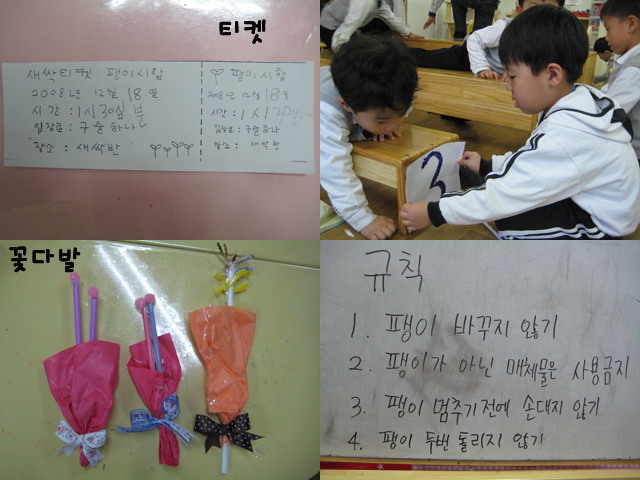 티켓
새싹티켓 팽이시합
2008년 12월 18일
시간 : 1시30십 분
입장료 : 구슬 하나
장소 : 새싹반
팽이시합
2008년 12월 18일
시간 : 1시
입장료 : 구슬하나
장소 : 새싹반
3
꽃다발
규칙
1. 팽이 바꾸지 않기
2. 팽이가 아닌 매체물은 사용금지
3. 팽이 멈추기전에 손대지 않기
4. 팽이 두번 돌리지 않기